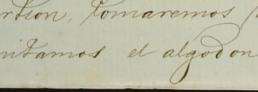 rtion, tomaremos
nitamos el algodon